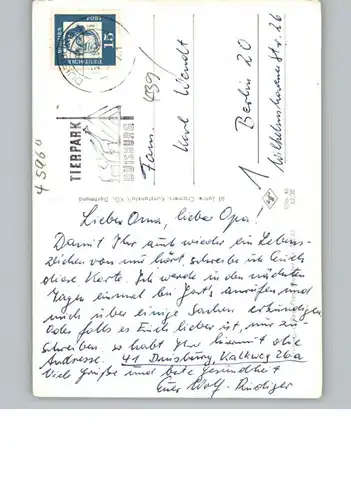 15
DEUTSCHE
TIERPARK
DUISBURG
Fam.
Karl Wendt
1 Berlin 20
Wilhelmshavener Str. 26
439/
45960
30 Jahre Cramers Kunstanstalt KG., Dortmund
Lieber Oma, lieber Opa!
Damit Ihr auch wieder ein Lebens-
zeichen von uns hört schreibe ich Euch
diese Karte. Ich werde in den nächsten
Tagen einmal bei anrufen und
mich über einige Sachen erkundigen
Oder falls es Euch lieber ist, mir zu
schreiben, so habt Ihr hiermit die
Andresse. 41 Duisburg, Kalkweg 26a
Viele Grüße und bete Gesundheit
Euer Wolf-Rüdiger